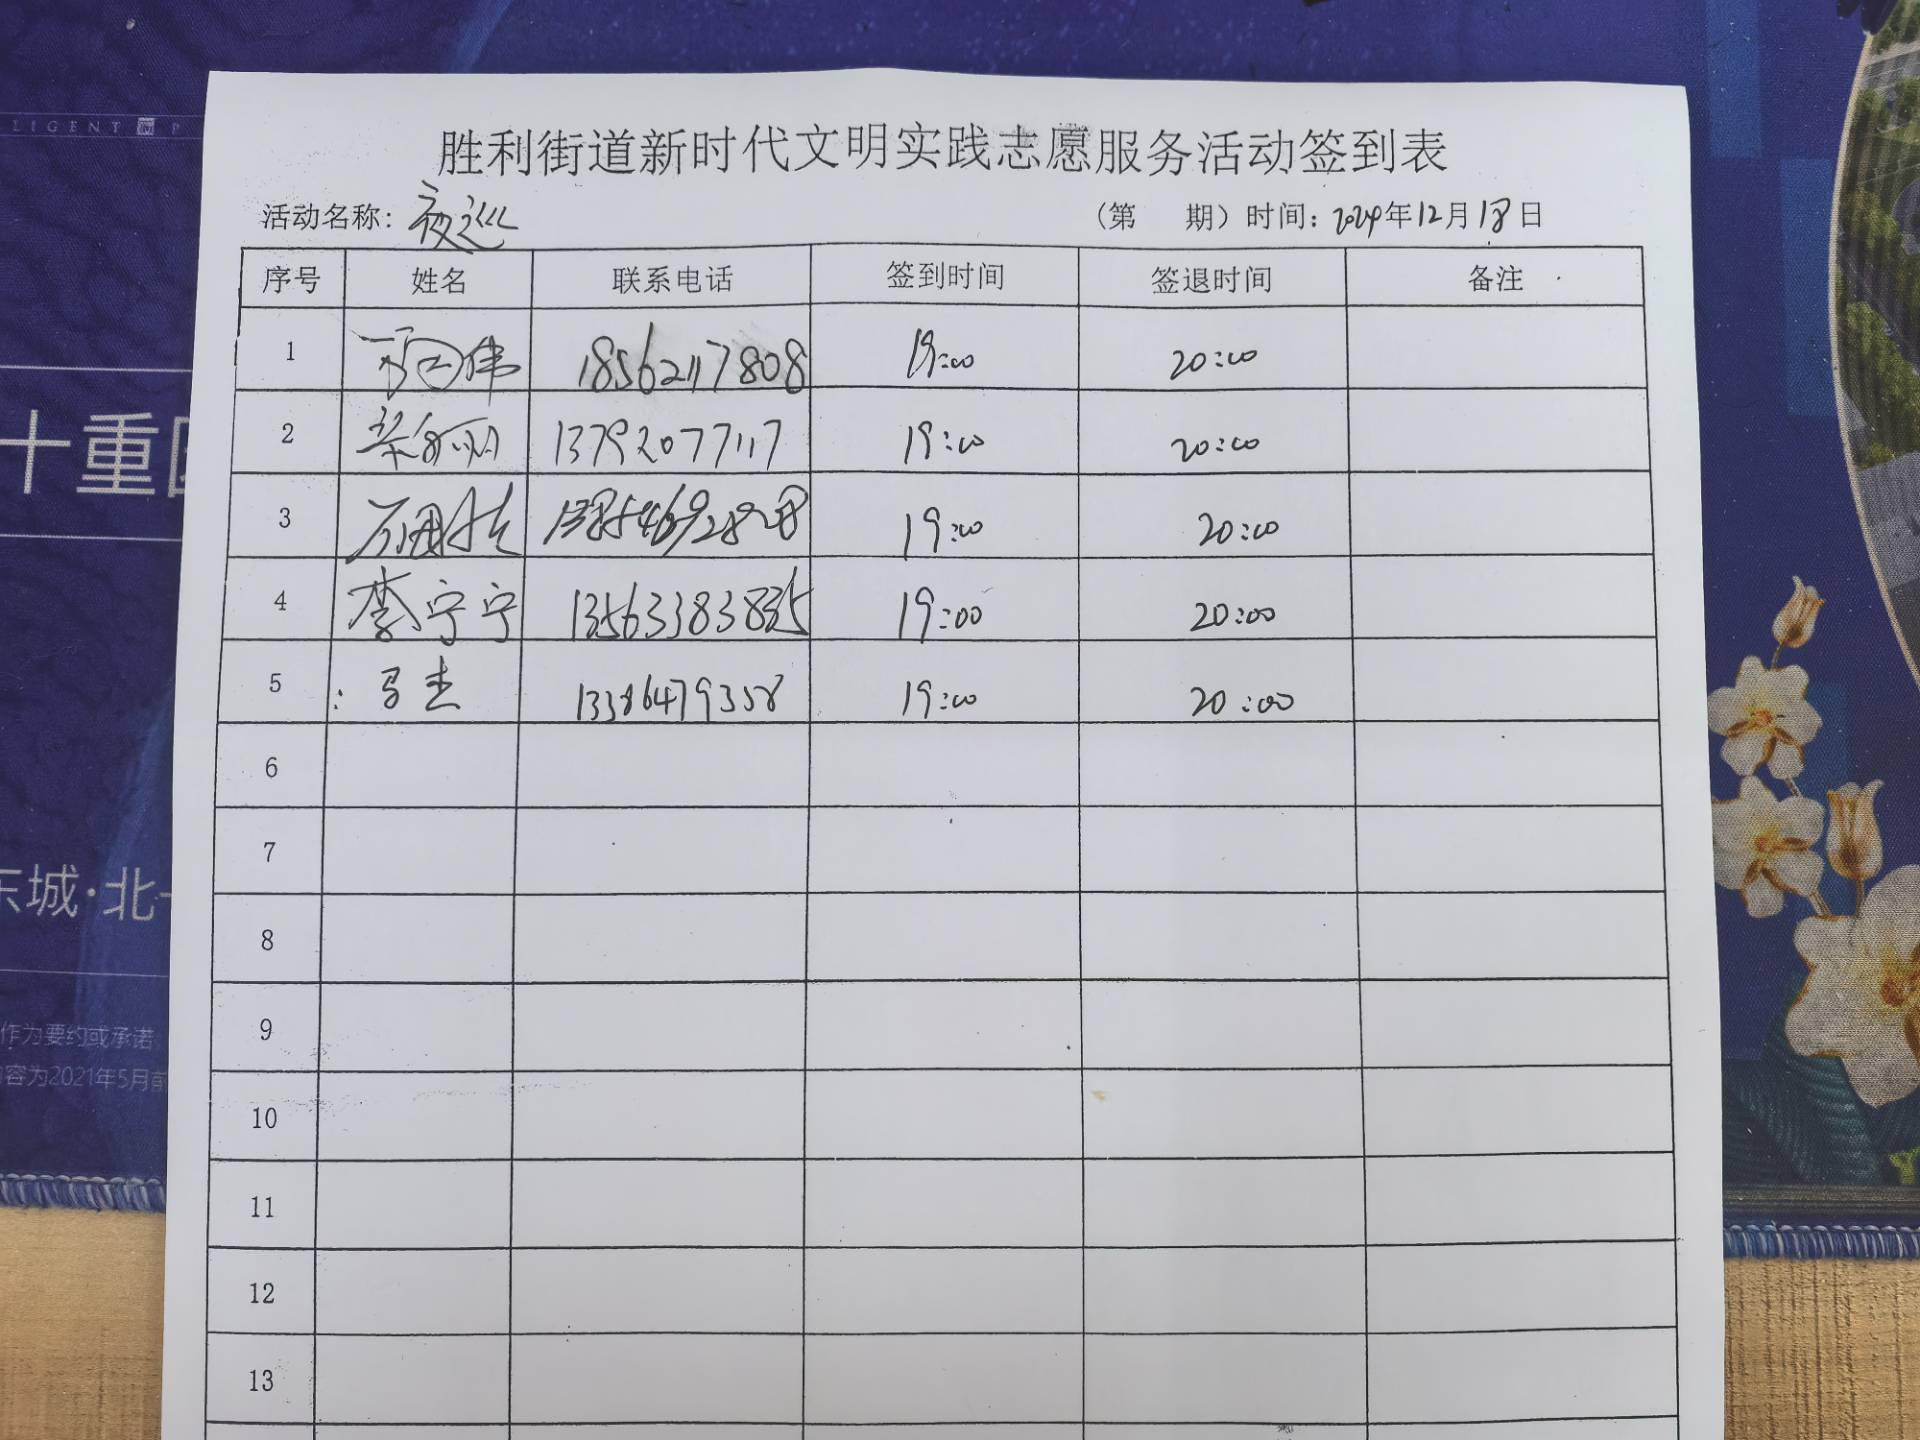 LIGENT P
十重
东城·北
作为要约或承诺
容为2021年5月前
胜利街道新时代文明实践志愿服务活动签到表
活动名称: 夜巡 (第 期) 时间: 2024年12月18日
序号 姓名 联系电话 签到时间 签退时间 备注
1 18562117808 19:00 20:00
2 13792077117 19:00 20:00
3 19:00 20:00
4 李宁宁 13563383835 19:00 20:00
5 马杰 13386479358 19:00 20:00
6
7
8
9
10
11
12
13